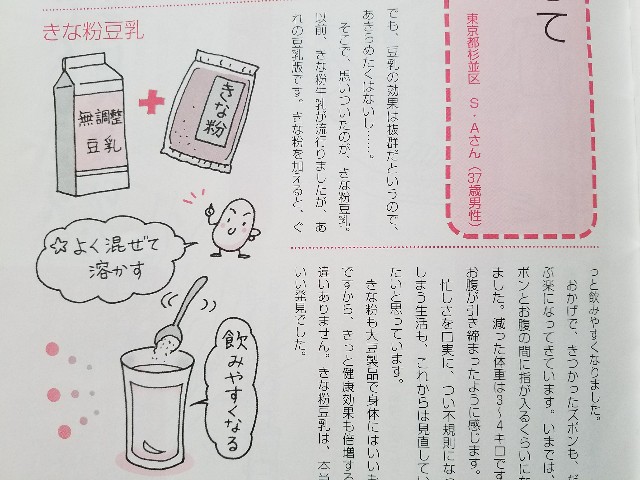 て
東京都杉並区 S・Aさん(37歳男性)
でも、豆乳の効果は抜群だというので、
あきらめたくはないし……。
そこで、思いついたのが、きな粉豆乳。
以前、きな粉牛乳が流行りましたが、あ
れの豆乳版です。きな粉を加えると、ぐ
っと飲みやすくなりました。
おかげで、きつかったズボンも、だ
ぶ楽になってきています。いまでは、
ボンとお腹の間に指が入るくらいにな
ました。減った体重は3〜4キロです
お腹が引き締まったように感じます。
忙しさを口実に、つい不規則になっ
しまう生活も、これからは見直してい
たいと思っています。
きな粉も大豆製品で身体にはいいも
ですから、きっと健康効果も倍増する
違いありません。きな粉豆乳は、本当
いい発見でした。
きな粉豆乳
無調整
豆乳
+
きな粉
☆よく混ぜて
溶かす
飲みやすくなる